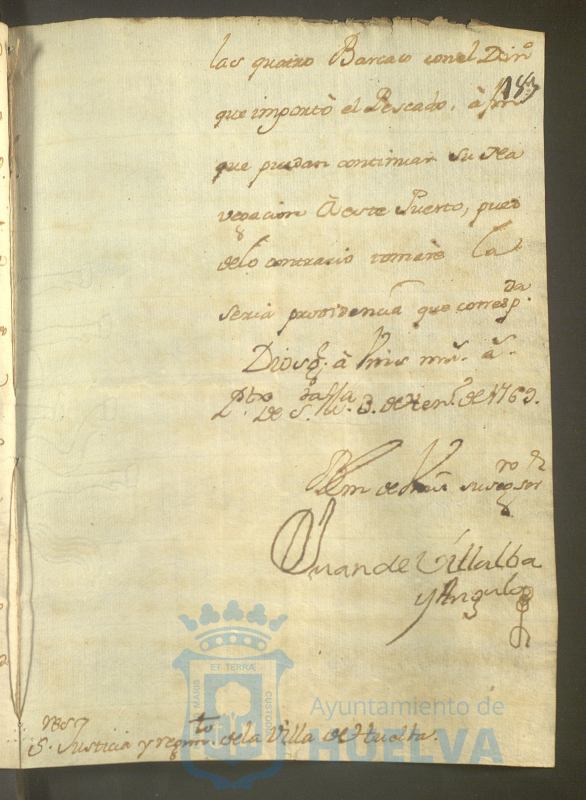 las quatro Barcas con el Din.o
183
que importò el Pescado, à fin
que puedan continuar su na
vegacion à este Puerto, pues
de lo contrario tomarè la
seria providencia que corresp.da
Dios g.e à Vms m.s a.s
P.to de S.ta M.a 3. de Hen.o de 1769.
BLm de Vms su seg.ro ser.or
Juan de Villalba
y Angulo
S.res Justicia y regim.to de la Villa de Huelva.
ET TERRAE
MARIS
CUSTODIA
Ayuntamiento de
HUELVA